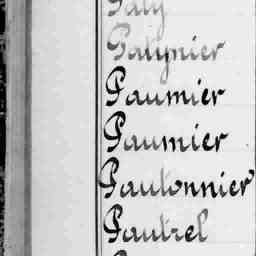 Paly
Palynier
Paumier
Paumier
Pautonnier
Pautrel